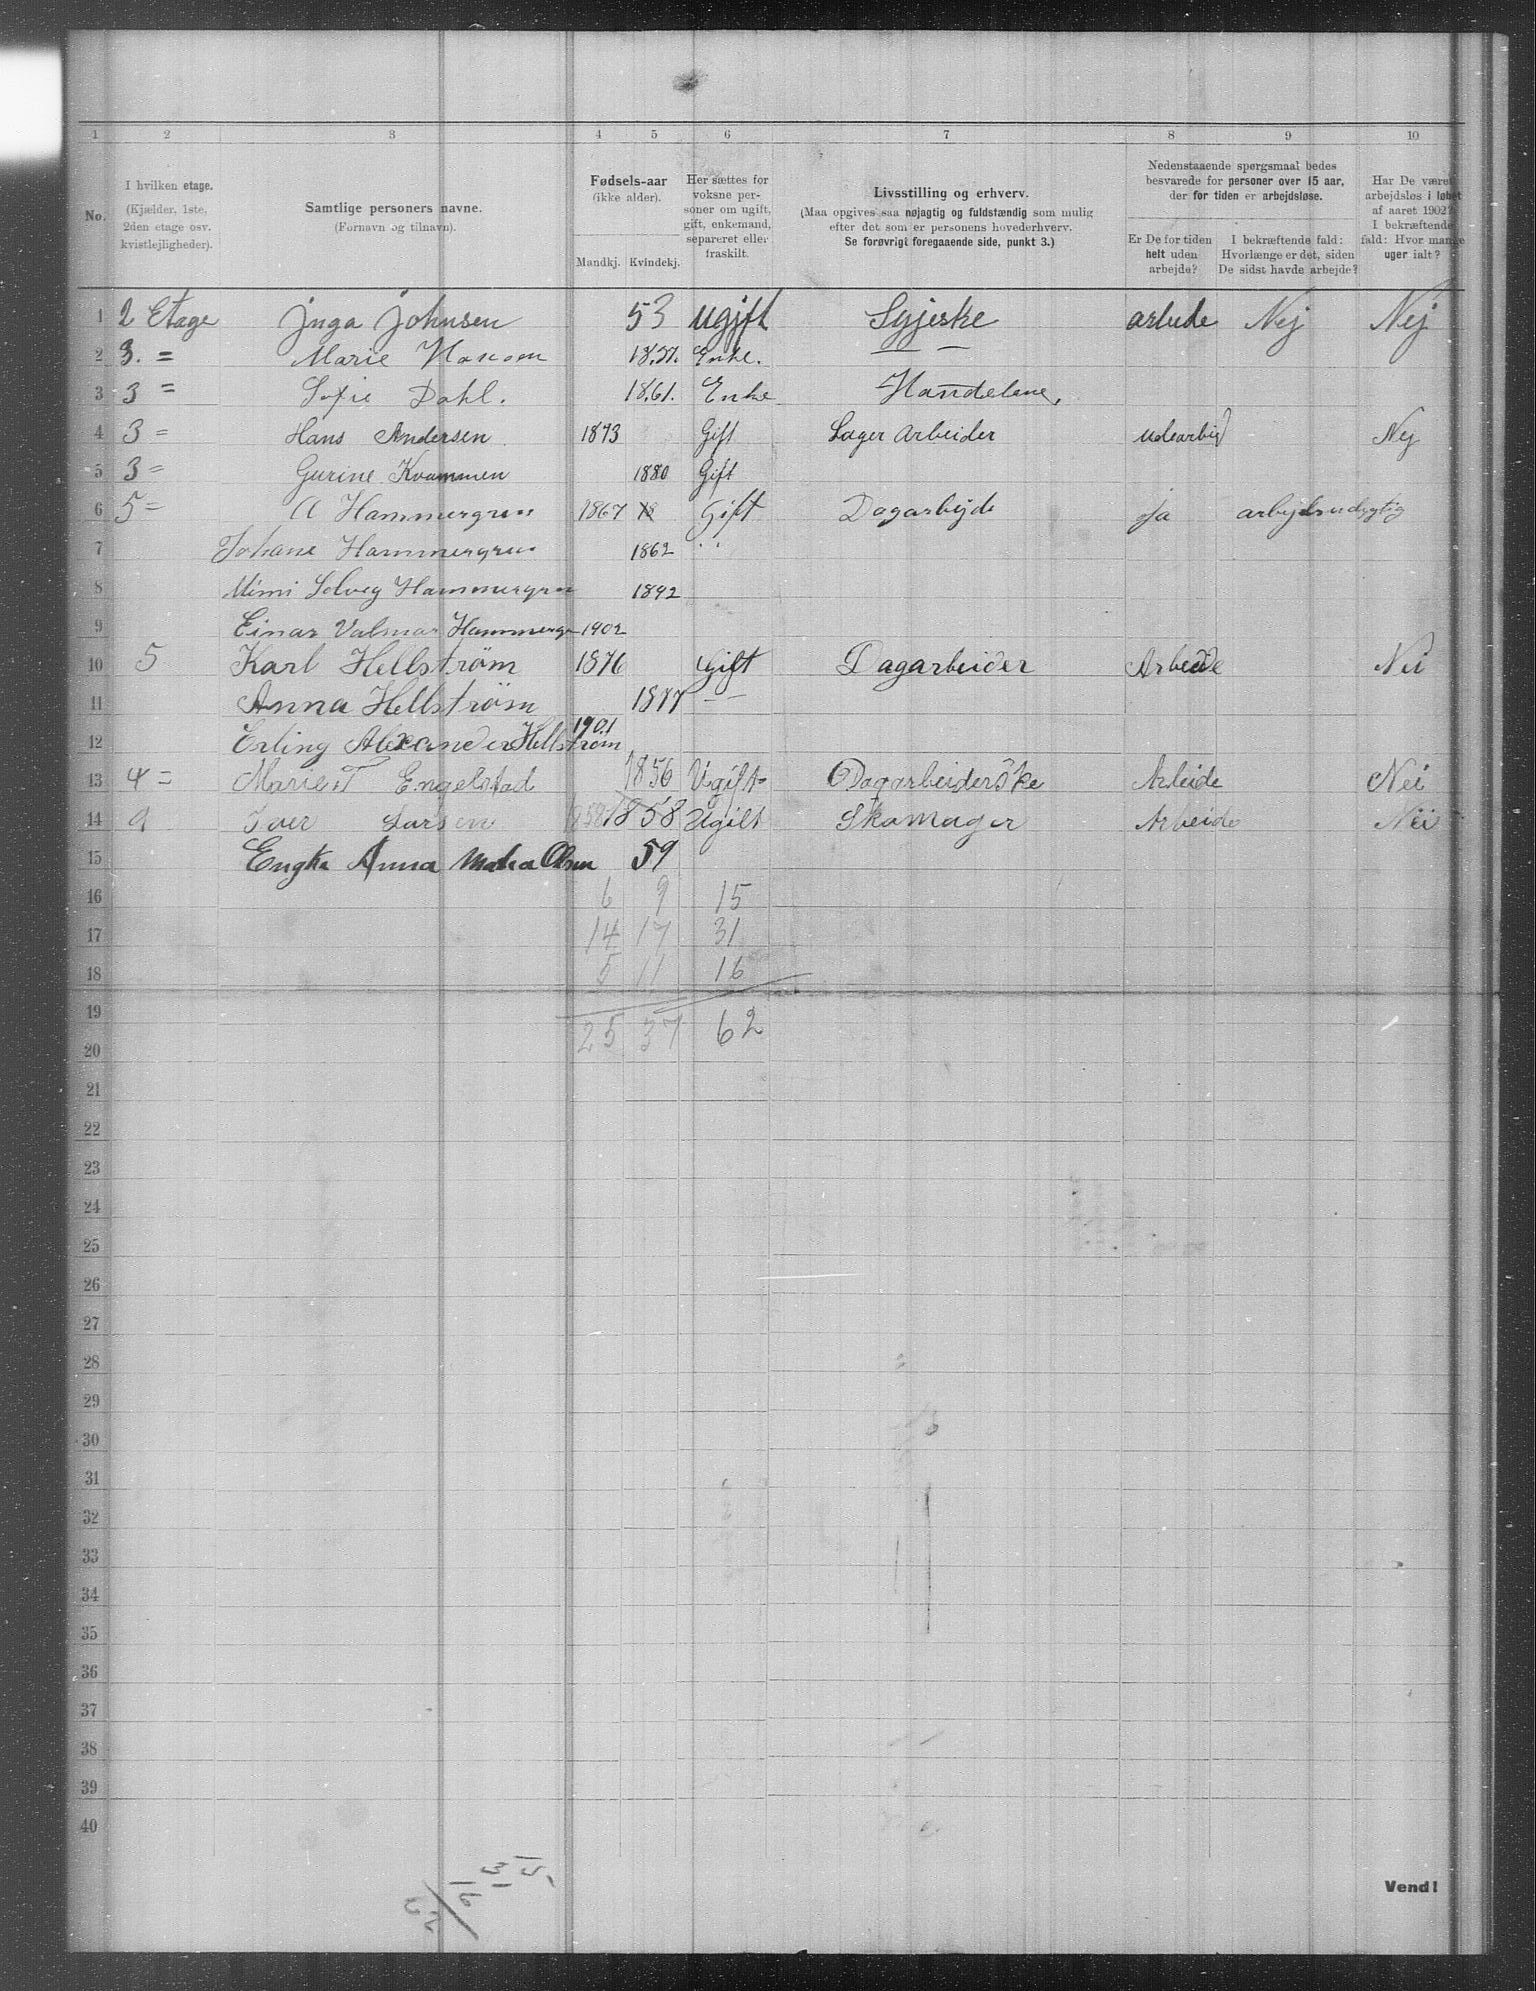 1 2 3 4 5 6 7 8 9 10
No.
I hvilken etage.
(Kjælder, 1ste,
2den etage osv.
kvistlejligheder).
Samtlige personers navne.
(Fornavn og tilnavn).
Fødsels-aar
(ikke alder).
Mandkj. Kvindekj.
Her sættes for
voksne per-
soner om ugift,
gift, enkemand,
separeret eller
fraskilt.
Livsstilling og erhverv.
(Maa opgives saa nøjagtig og fuldstændig som mulig
efter det som er personens hovederhverv.
Se forøvrigt foregaaende side, punkt 3.)
Nedenstaaende spørgsmaal bedes
besvarede for personer over 15 aar,
der for tiden er arbejdsløse.
Er De for tiden
helt uden
arbejde?
I bekræftende fald:
Hvorlænge er det, siden
De sidst havde arbejde?
Har De været
arbejdsløs i løbet
af aaret 1902?
I bekræftende
fald: Hvor mange
uger ialt?
1 2 Etage Inga Johnsen 53 ugift Syjeske arbeide Nej Nej
2 3. = Marie 18.37. Enke. — —
3 3 = Sofie Dahl. 18.61. Enke Handelene.
4 3 = Hans Andersen 1873 Gift Lager Arbeider Nej
5 3 = Gurine Kvammen 1880 Gift
6 5 = A Hammergren 1867 18 Gift Dagarbejde ja arbejdsudygtig
7 Johane Hammergren 1862 " "
8 Mimi Solveg Hammergren 1892
9 Einar Valmar Hammergr 1902
10 5 Karl Hellström 1876 Gift Dagarbeider Arbeide Nei
11 Anna Hellström 1877 —
12 Erling Alexander Hellström 1901
13 4 = Marie T Engelstad 1856 Ugift Dagarbeiderske Arbeide Nei
14 9 Iver Larsen 1858 Ugift Skomager Arbeide Nei
15 Engke Anna Olsen 59
16 6 9 15
17 14 17 31
18 5 11 16
19 25 37 62
20
21
22
23
24
25
26
27
28
29
30
31
32
33
34
35
36
37
38
39
40
15
31
16
62
Vend!